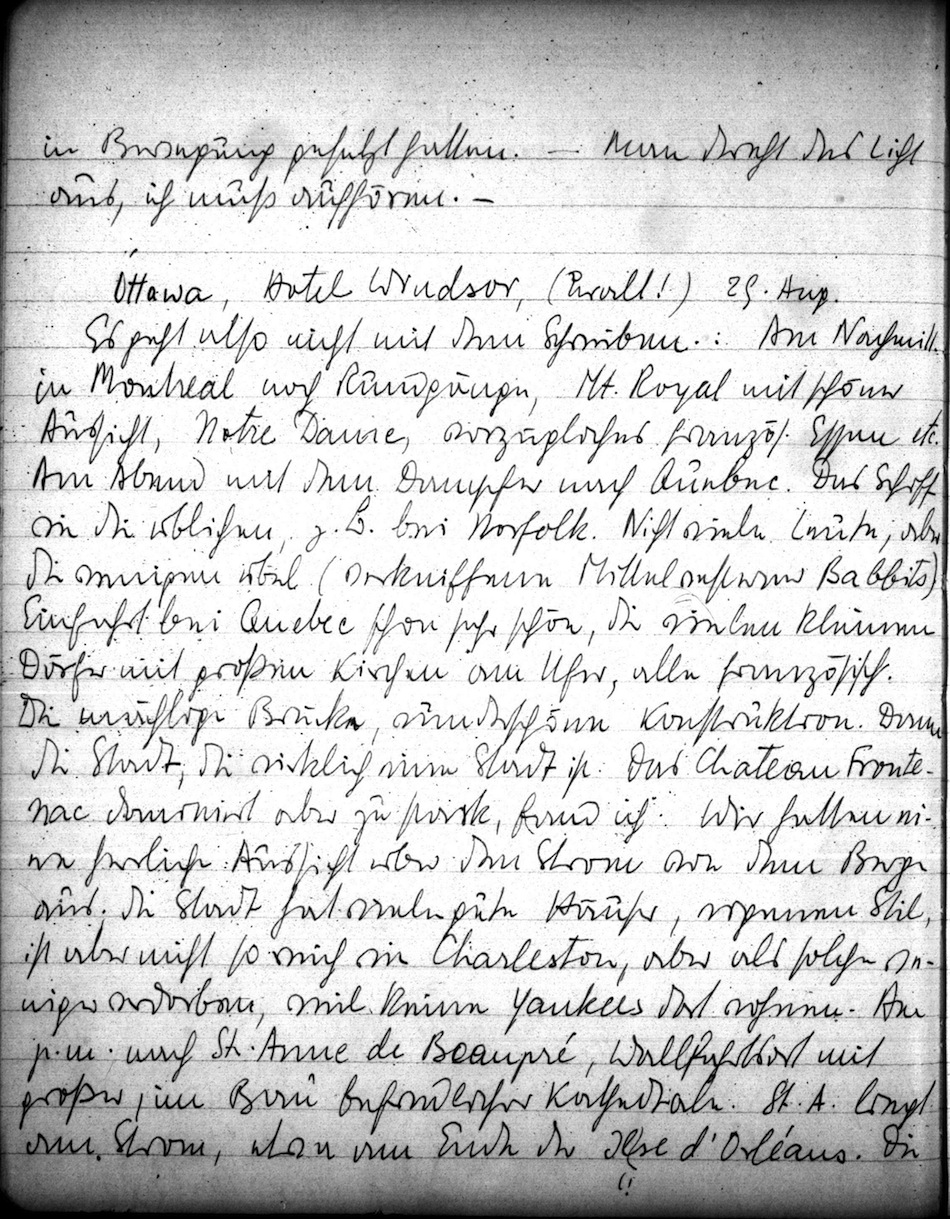 in Bewegung gesetzt hatten. — Man dreht das Licht
aus, ich muß aufhören. –
Ottawa, Hotel Windsor, (Überall!) 29. Aug.
Es geht also nicht mit dem Schreiben.: Am Nachmitt.
in Montreal noch Rundgänge, Mt. Royal mit schöner
Aussicht, Notre Dame, vorzügliches französ. Essen etc.
Am Abend mit dem Dampfer nach Quebec. Das Schiff
wie die üblichen, z. B. bei Norfolk. Nicht viele Leute, aber
die wenigen übel (verkniffene Mittelwesterner Babbits)
Einfahrt bei Quebec schon sehr schön, die vielen kleinen
Dörfer mit großen Kirchen am Ufer, alle französisch.
Die mächtige Brücke, wunderschöne Konstruktion. Dann
die Stadt, die wirklich eine Stadt ist. Das Chateau Fronte-
nac dominiert aber zu stark, fand ich. Wir hatten ei-
ne herrliche Aussicht über den Strom von dem Berge
aus. Die Stadt hat viele gute Häuser, eigenen Stil,
ist aber nicht so reich wie Charleston, aber als solche we-
niger verdorben, weil keine Yankees dort wohnen. Am
p. m. nach St. Anne de Beaupré, Wallfahrtsort mit
großer, im Bau befindlicher Kathedrale. St. A. liegt
am Strom, etwa am Ende der Ilse d'Orléans. Die